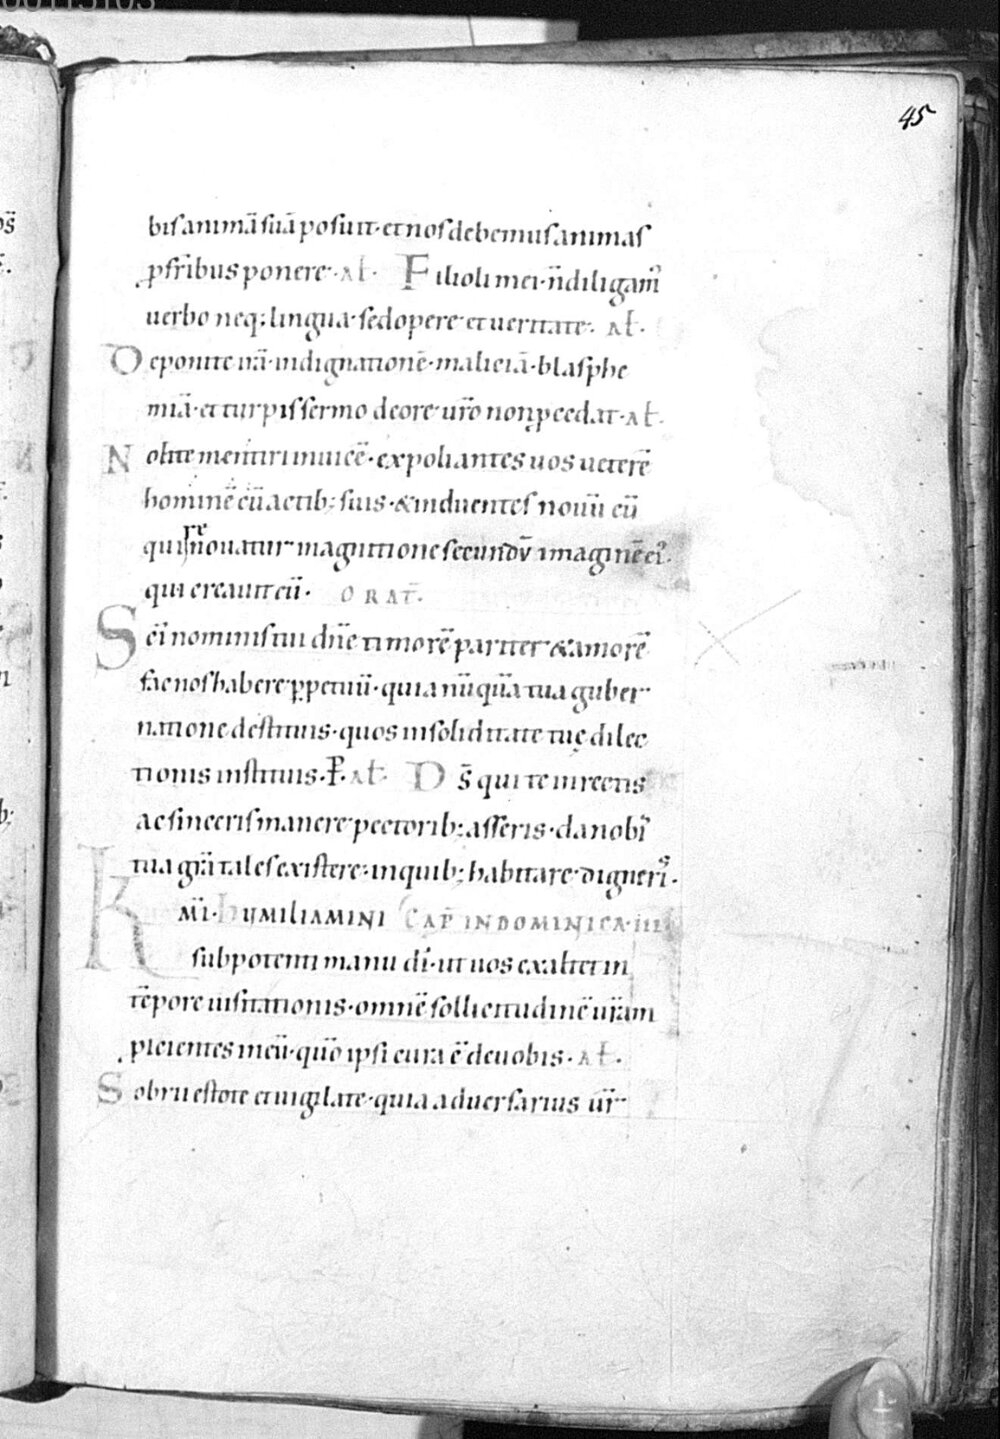 45
bis animā suā posuit · et nos debemus animas
p̱ fr̄ibus ponere · Al̄ · Filioli mei · n̄ diligam᷒
uerbo neq; lingua · sed opere et ueritate · Al̄ ·
Deponite irā · indignationē · maliciā · blasphe
miā · et turpis sermo de ore ur̄o non p̱cedat · Al̄ ·
Nolite mentiri inuicē · expoliantes uos ueterē
hominē cū actib; suis · & induentes nouū eū
qui renouatur in agnitione secundū imaginē ei᷒ ·
qui creauit eū · ORAT̄ ·
Sc̄i nominis tui dn̄e timorē pariter & amorē
fac nos habere p̱petuū · quia nūquā tua guber
natione destituis · quos in soliditate tuę dilec
tionis instituis · P̄ · Al̄ · Ds̄ qui te in rectis
ac sinceris manere pectorib; asseris · da nobis
tua gr̄a tales existere · in quib; habitare digneris ·
K̄MI · HUMILIAMINI CAP̄ IN DOMINICA · III
sub potenti manu dī · ut uos exaltet in
tēpore uisitationis · omnē sollicitudinē ur̄am
p̱icientes in eū · quō ipsi cura ē de uobis · Al̄ ·
Sobrii estote et uigilate · quia aduersarius ur̄